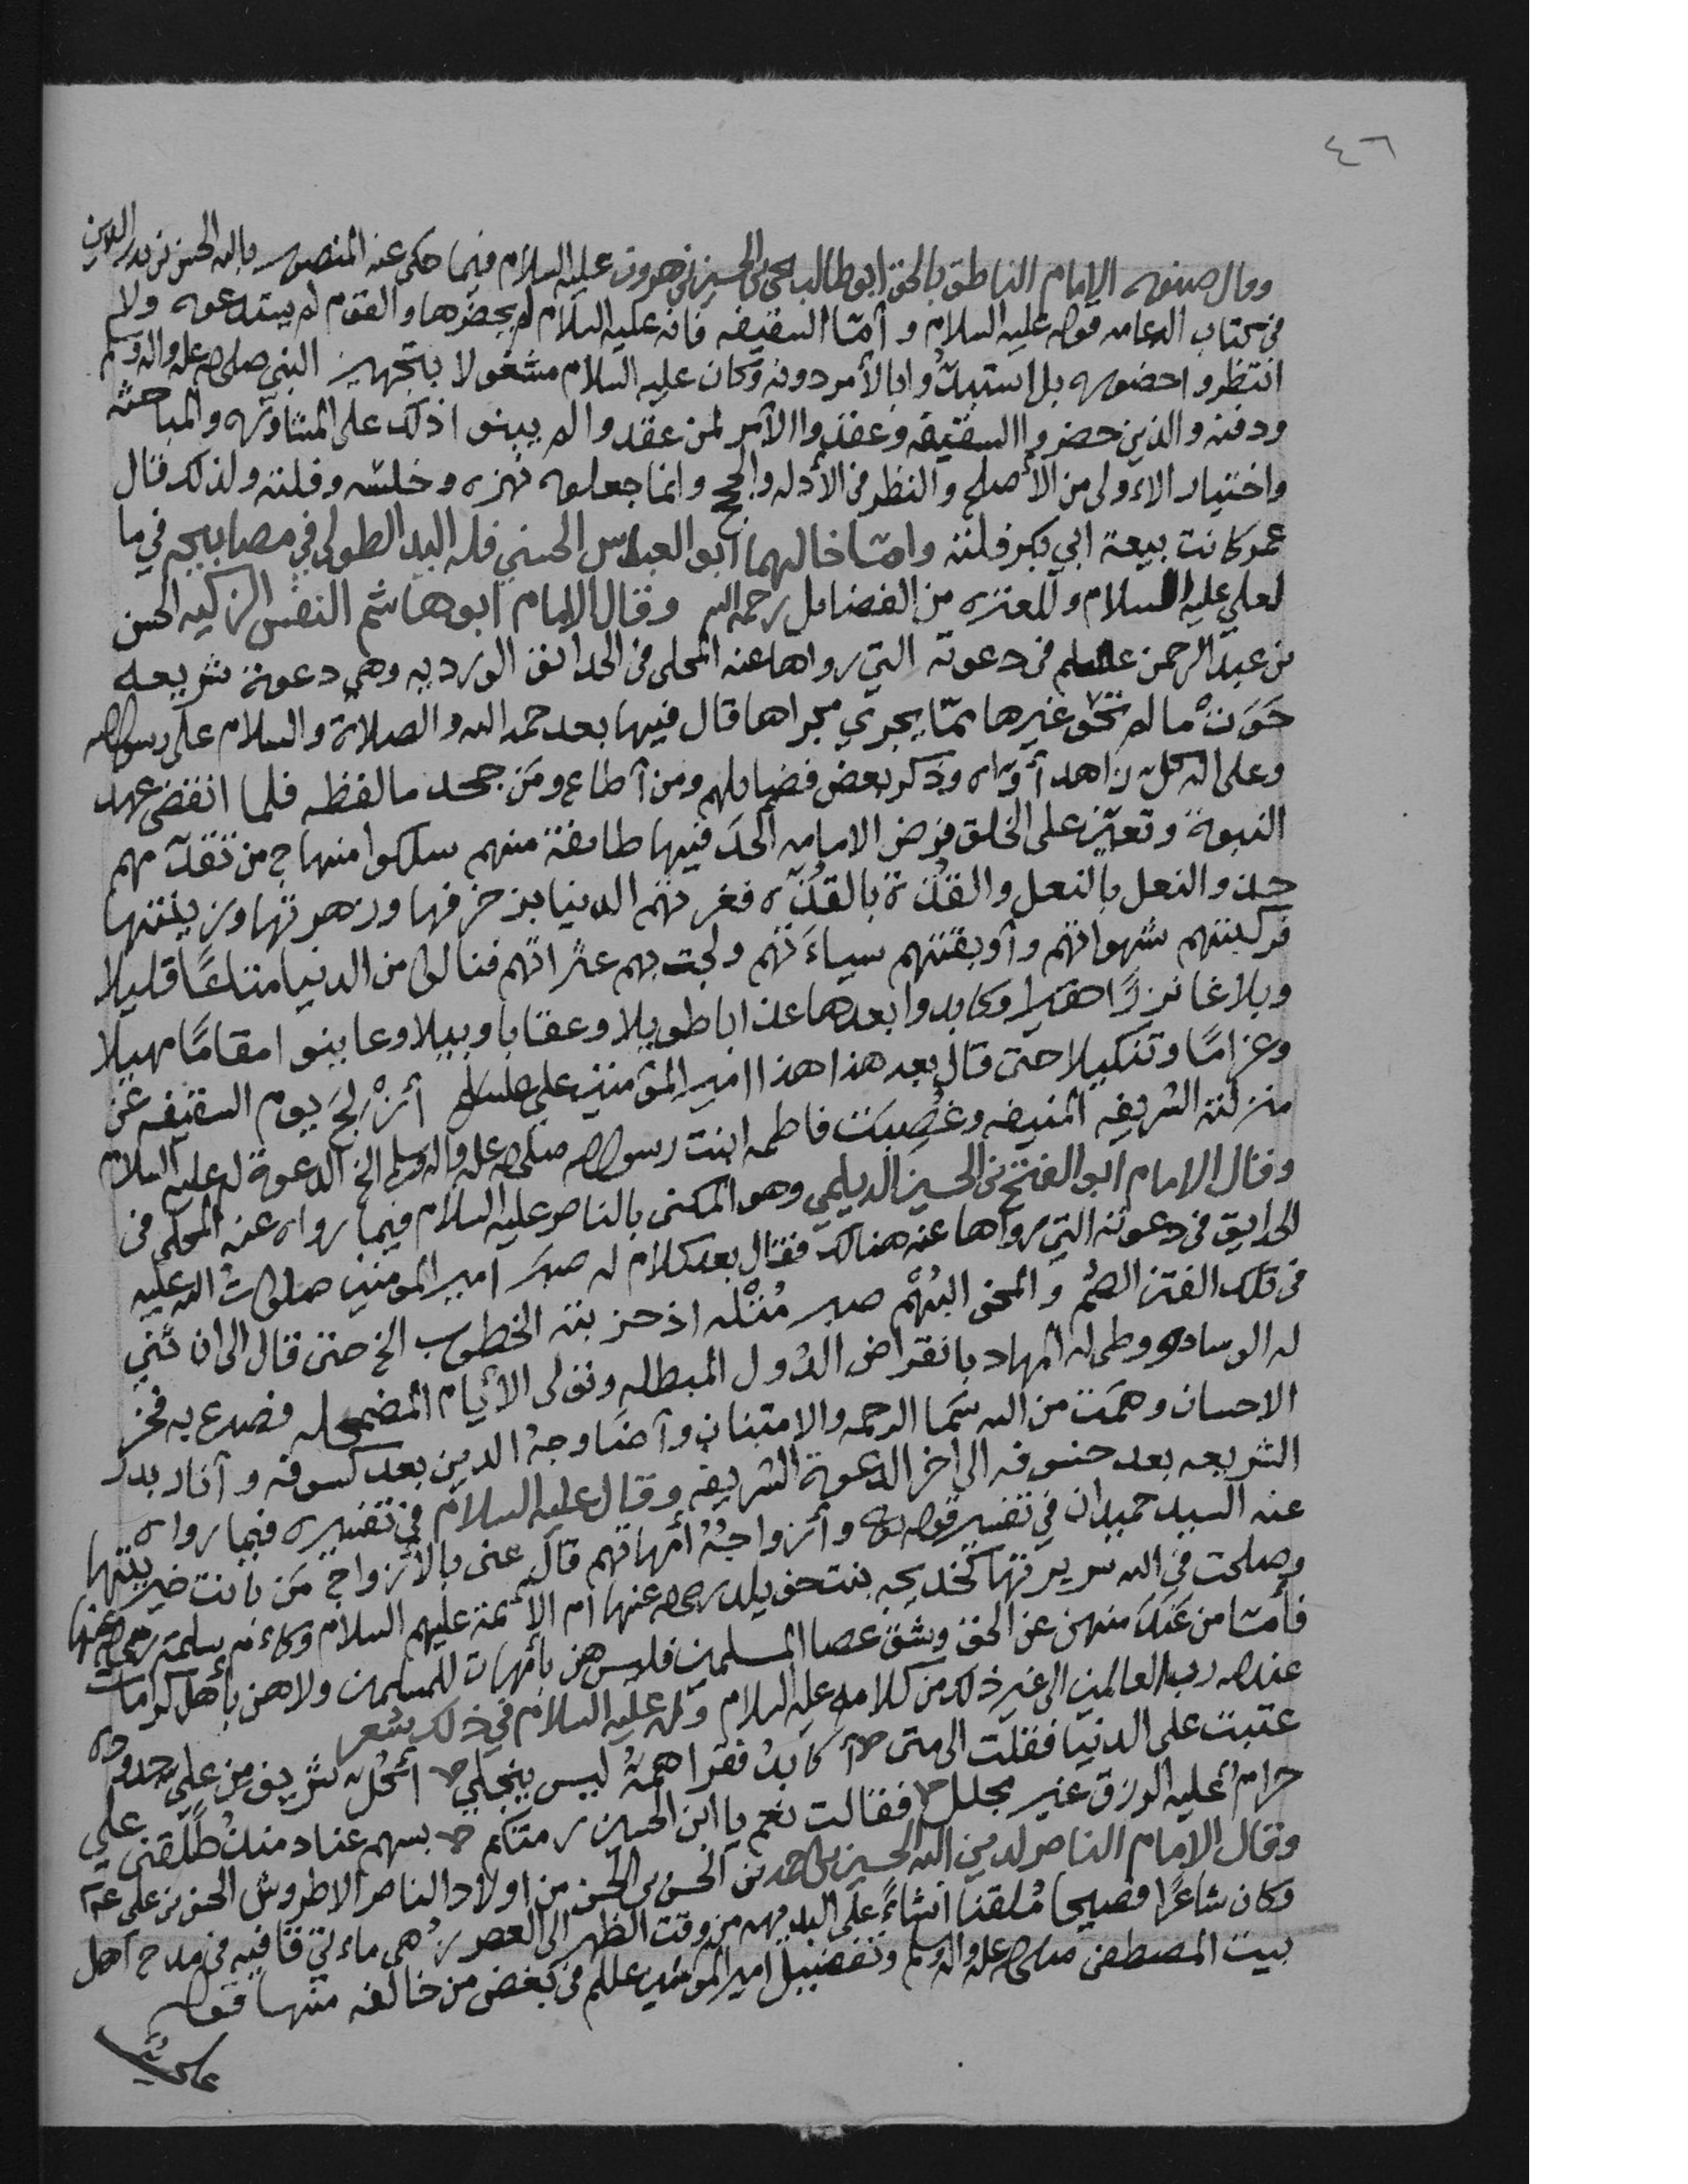 ٤٦
وقال صنوه الإمام الناطق بالحق ابو طالب يحيى بن الحسين بن هرون عليه السلام فيما حكى عنه المنصور بالله الحسن بن بدر الدين
في كتاب الدعامه قوله عليه السلام و أمّا السقيفه فانه عليه السلام لم يحضرها والقوم لم يستدعوه ولا
انتظروا حضوره بل استبدُّوا بالأمر دونه وكان عليه السلام مشغولا بتجهيز النبي صلى الله عليه واله وسلم
ودفنه والذين حضروا السقيفه وعقدوا الأمر لمن عقدوا لم يبنوا ذلك على المشاوره والمباحثه
واختيار الاولى من الأصلح والنظر في الأدله والحجج وانما جعلوه نهزه وخلسه وفلته ولذلك قال
عمر كانت بيعة ابي بكر فلته وامّا خالهما ابو العباس الحسني فله اليد الطولى في مصابيحه في ما
لعلي عليه السلام وللعتره من الفضايل رحمه الله وقال الإمام ابو هاشم النفس الزكيه الحسن
بن عبد الرحمن عليلم في دعوته التي رواها عنه المحلى في الحدائق الورديه وهي دعوة شريعه
حَوَتْ ما لم تحو غيرها ممّا يجري مجراها قال فيها بعد حمد الله والصلاة والسلام على رسول الله
وعلى اله كل زاهد أوّاه وذكر بعض فضايلهم ومن أطاع ومن جحد ما لفظه فلما انقضى عهد
النبوة وتعيّن على الخلق فرض الامامه الحدَ فيها طائفة منهم سلكوا منهاج من تقدّمهم
حذو النعل بالنعل والقُذّة بالقُذّه فغرتهم الدنيا بزخرفها وزهرتها وزينتها
فركبتهم شهواتهم وأوبقتهم سياءتهم ولجت بهم عثراتهم فنالوا من الدنيا متاعًا قليلا
وبلاغا نزرًا حقيرا وكابدوا بعدها عذابا طويلا وعقابا وبيلا وعاينوا مقامًا مهيلا
وغرامًا وتنكيلا حتى قال بعد هذا هذا امير المؤمنين علي عليلم أُزْلجَ يوم السقيفه عن
منزلته الشريفه المنيفه وغُصِبَت فاطمه ابنت رسول الله صلى الله عليه واله وسلم الخ الدعوة له عليه السلام
وقال الامام ابو الفتح بن الحسين الديلمي وهو المكنى بالناصر عليه السلام فيما رواه عنه المحلي في
الحدايق في دعوته التي رواها عنه هنالك فقال بعد كلام له صبَر امير المومنين صلواتُ الله عليه
في تلك الفتن الصُّم و المحن البُهْم صبر مُثْله اذ حزبته الخطوب الخ حتى قال الى ان ثُني
له الوساده ووطى له المهاد بانقراض الدُول المبطله وتولى الأيام المضمحله فصدع به فجر
الاحسان وهَمَت من الله سَما الرحمه والامتنان وأضَا وجهُ الدين بعد كسوفه و أنار بدر
الشريعه بعد خسوفه الى اخر الدعوة الشريفه وقال عليه السلام في تفسيره فيما رواه
عنه السيد حميدان في تفسير قوله تعالى وأزواجُهُ أمهاتهم قال عنى بالأزواج مَن بانت خيريتها
وصلحت في الله سريرتها كخديجه بنت خويلد رضي الله عنها ام الأئمة عليهم السلام وكام سلمة رضي الله عنها
فأمّا من عَنَدَ منهن عن الحق وشق عصا المسلمين فليس هن بأمهات للمسلمين ولا هن بأهل كرامات
عند الله رب العالمين الى غير ذلك من كلامه عليه السلام وله عليه السلام في ذلك شعر
عتبت على الدنيا فقلت الى متى أكابدُ فقرا همهُ ليس ينجلي أكُلُ شريف من علي جدوده
حرامٌ عليه الرزق غير محلل فقالت نعم يا ابن الحسين رمتكم بسهم عناد منذ طلّقني علي
وقال الإمام الناصر لدين الله الحسين بن احمد بن الحسن بن الحسن من اولاد الناصر الاطروش الحسن بن علي عم
وكان شاعرًا فصيحا مُلقنا انشاءً على البديهه من وقت الظهر الى العصر زُهى ماءتي قافيه في مدح أهل
بيت المصطفى صلى الله عليه واله وسلم وتفضيل امير المومنين عليلم في بغض من خالفه منها قوله